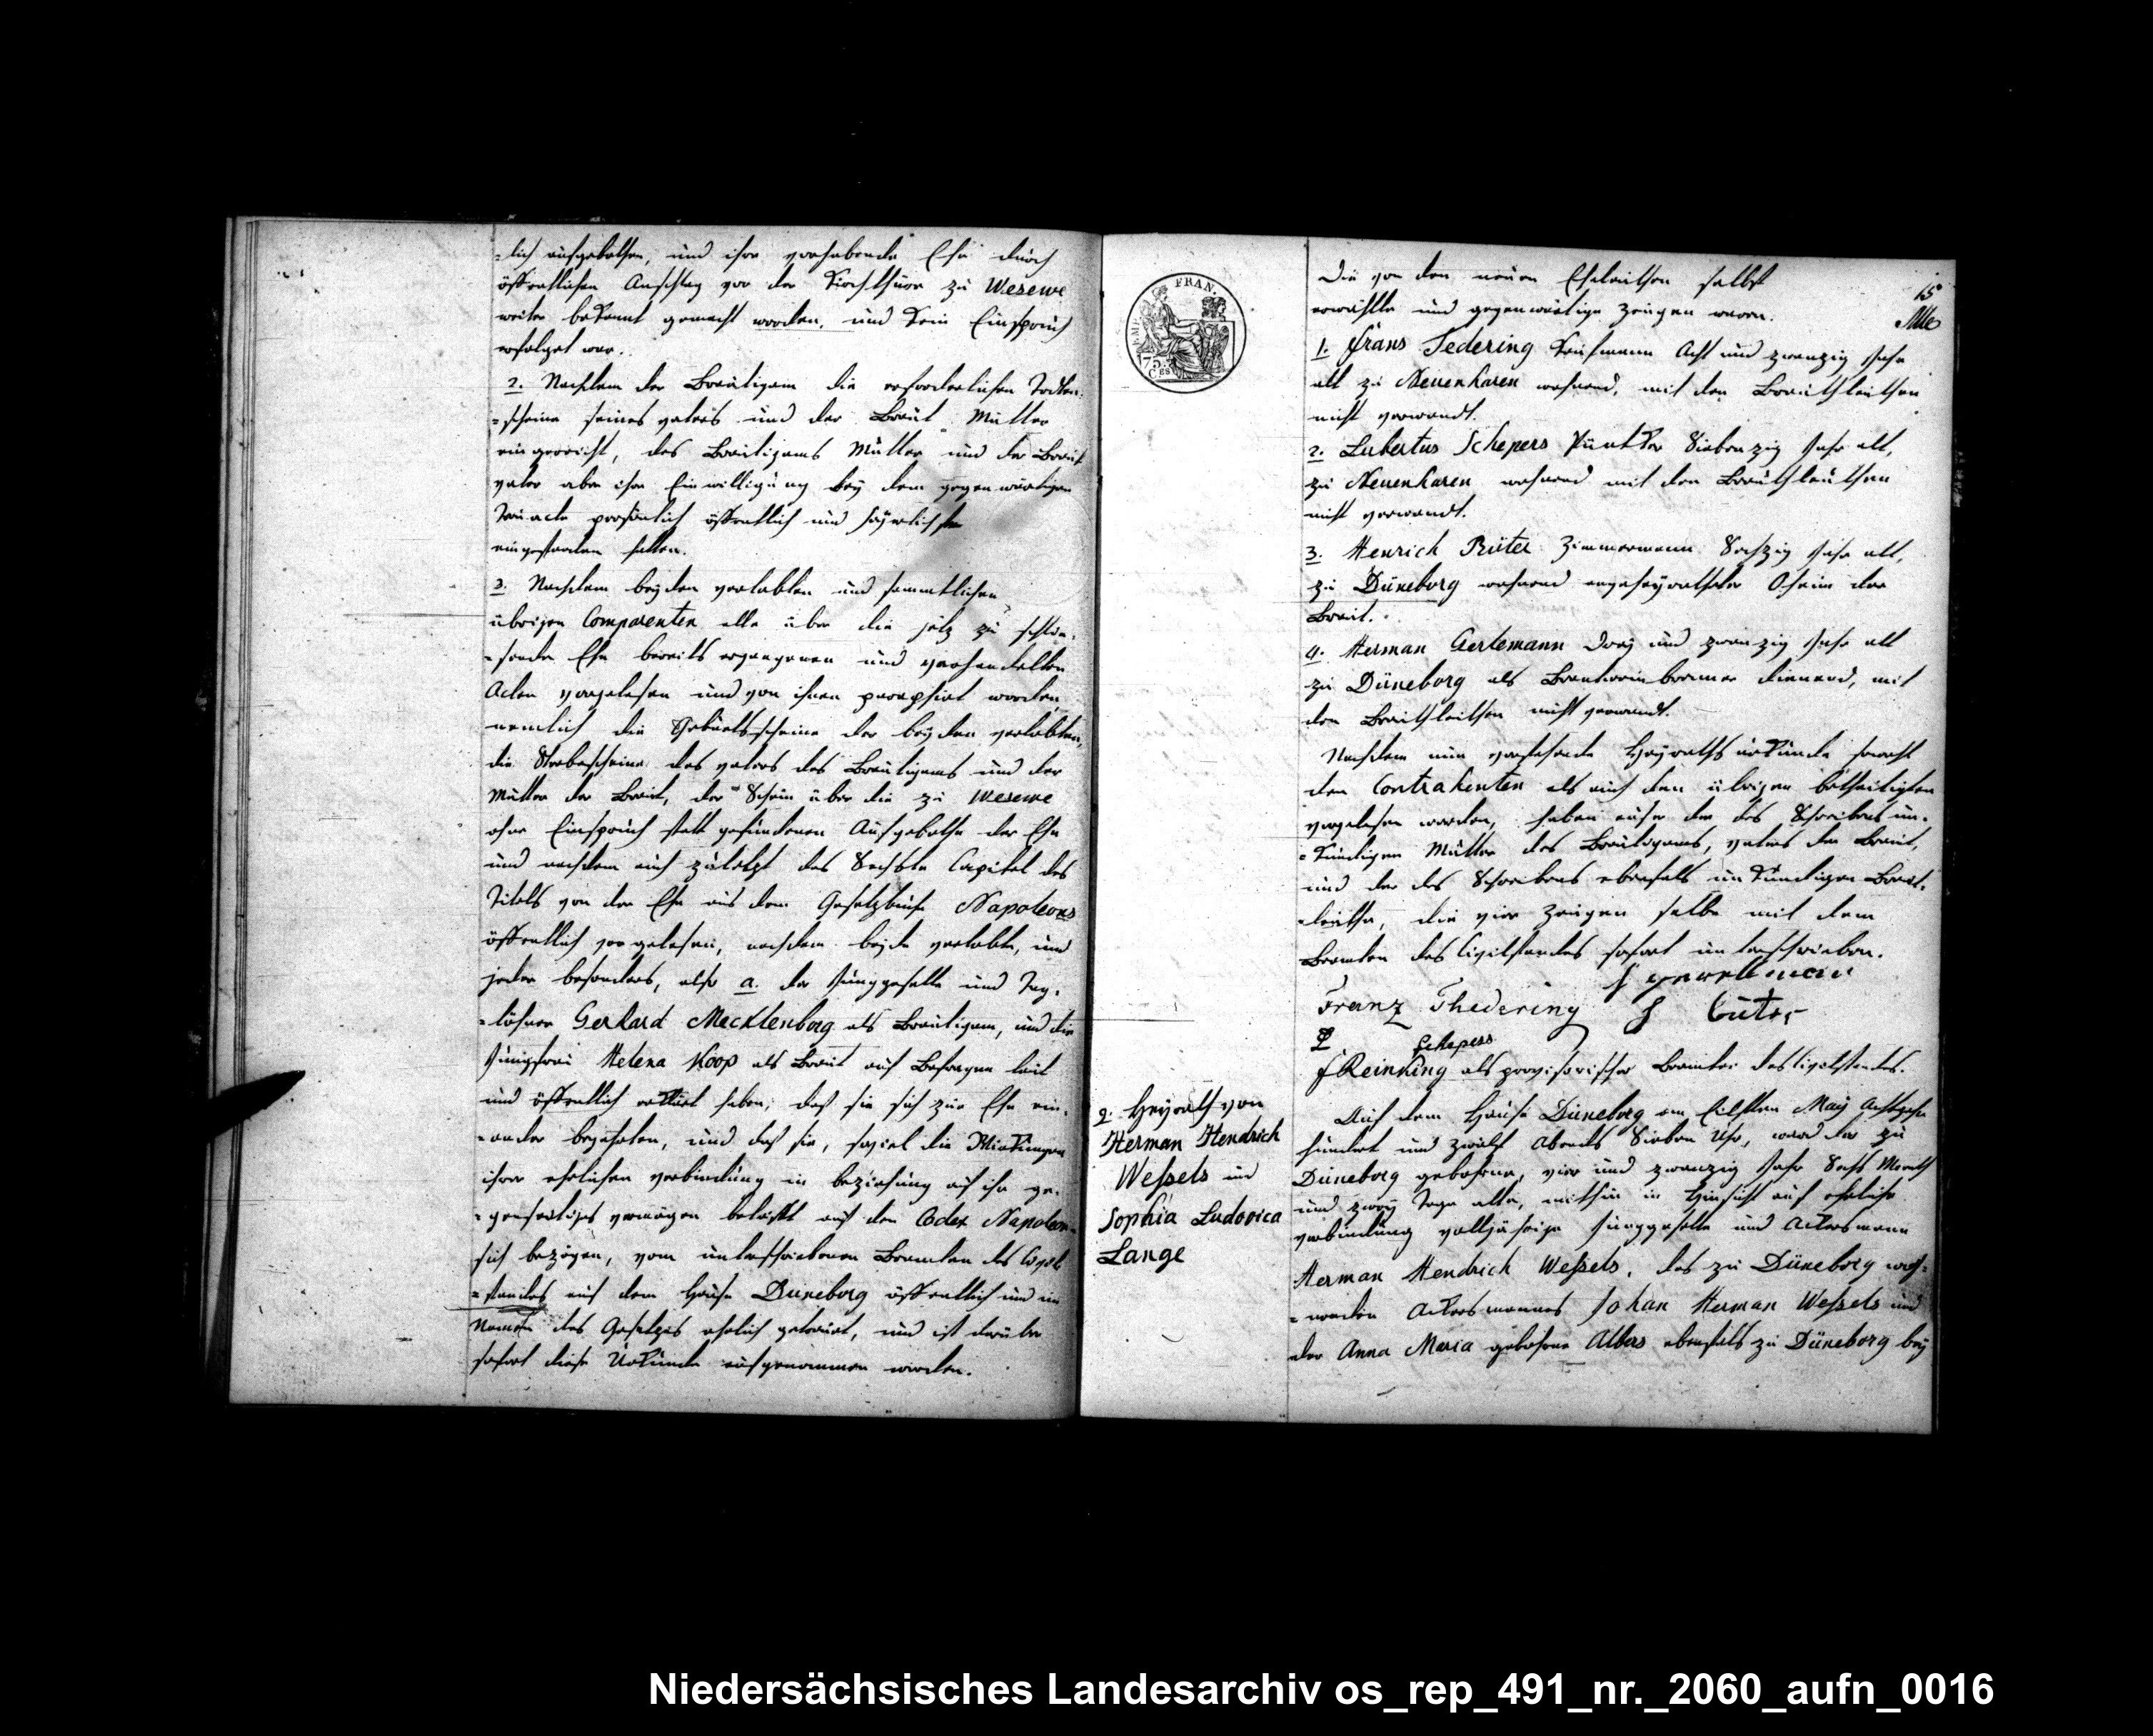 =lich aufgebothen, und ihre vorhabende Ehe durch
öffentlichen Anschlag vor der Kirchthüre zu Wesewe
weiter bekannt gemacht worden, und kein Einspruch
erfolget war.
2. Nachdem der Bräutigam die erforderlichen Todten-
=scheine seines vaters und der Braut Mutter
eingereicht, des Bräutigams Mutter und der Braut
vater aber ihre Einwilligung bey dem gegenwärtigen
Trauacte persönlich öffentlich und feyerlichst
eingestanden hatten.
3. Nachdem beyden verlobten und sammtlichen
übrigen Comparenten alle über die jetz zu schlie-
=sende Ehe bereits ergangenen und verhandelten
Acten vorgelesen und von ihnen paraphirt worden,
nemlich die Geburtsscheine der beyden verlobten,
die Sterbescheine des vaters des Bräutigams und der
Mutter der Braut, der Schein über die zu Wesewe
ohne Einspruch statt gefundenen Aufgebothe der Ehe
und nachdem auch zuletzt das Sechste Capitel des
Titels von der Ehe aus dem Gesetzbuche Napoleons
öffentlich vorgelesen, nachdem beyde verlobte, und
jeder besonders, also a. der Junggeselle und Tag-
=löhner Gerhard Mecklenborg als Bräutigam, und die
Jungfrau Helena Koop als Braut auf Befragen laut
und öffentlich erklärt haben, daß sie sich zur Ehe ein-
=ander begehrten, und daß sie, soviel die Wirkungen
ihrer ehelichen verbindung in beziehung auf ihr ge-
=genseitiges vermögen betrift auf den Codex Napoleon
sich bezögen, vom unterschriebenen Beamten des Civil-
=standes auf dem Hause Düneborg öffentlich und im
Namen des Gesetzes ehelich getrauet, und ist darüber
sofort diese Urkunde aufgenommen worden.
15
FRAN.
75.
Ces
Die von den neuen Eheleuthen selbst
erwählte und gegenwärtige Zeugen waren.
1. Frans Tedering Kaufmann Acht und zwanzig Jahr
alt zu Neuenharen wohnend, mit den Brautleuthen
nicht verwandt.
2. Lubertus Schepers Siebenzig Jahr alt,
zu Neuenharen wohnend mit den Brautleuthen
nicht verwandt.
3. Henrich Rüter Zimmermann Sechzig Jahr alt,
zu Düneborg wohnend angeheyratheter Oheim der
Braut.
4. Herman Gerlemann Drey und zwanzig Jahr alt
zu Düneborg als Brantweinbrenner dienend, mit
den Brautleuthen nicht verwandt.
Nachdem nun vorstehende Heyrathsurkunde sowohl
den Contrahenten als auch den übrigen betheiligten
vorgelesen worden, haben auser der des Schreibens un-
=kundigen Mutter des Bräutigams, vaters der Braut,
und der des Schreibens ebenfals unkundigen Braut-
=leuthe, die vier Zeugen selbe mit dem
Beamten des Civilstandes sofort unterschrieben.
Franz Thedering
Schepers
Reinking als provisorischer Beamter des Civilstandes.
9. Heyrath von
Herman Hendrich
Weßels und
Sophia Ludovica
Lange
Auf dem Hause Düneborg am Eilften May Achtzehn
hundert und zwölf Abends Sieben Uhr, ward der zu
Düneborg gebohrne, vier und zwanzig Jahr Sechs Monath
und zwey Tage alte, mithin in Hinsicht auf eheliche
verbindung volljährige Junggeselle und Ackersmann
Herman Hendrich Weßels, des zu Düneborg woh-
=nenden Ackersmannes Johan Herman Weßels und
der Anna Maria gebohrne Albers ebenfals zu Düneborg bey
Niedersächsisches Landesarchiv os_rep_491_nr._2060_aufn_0016